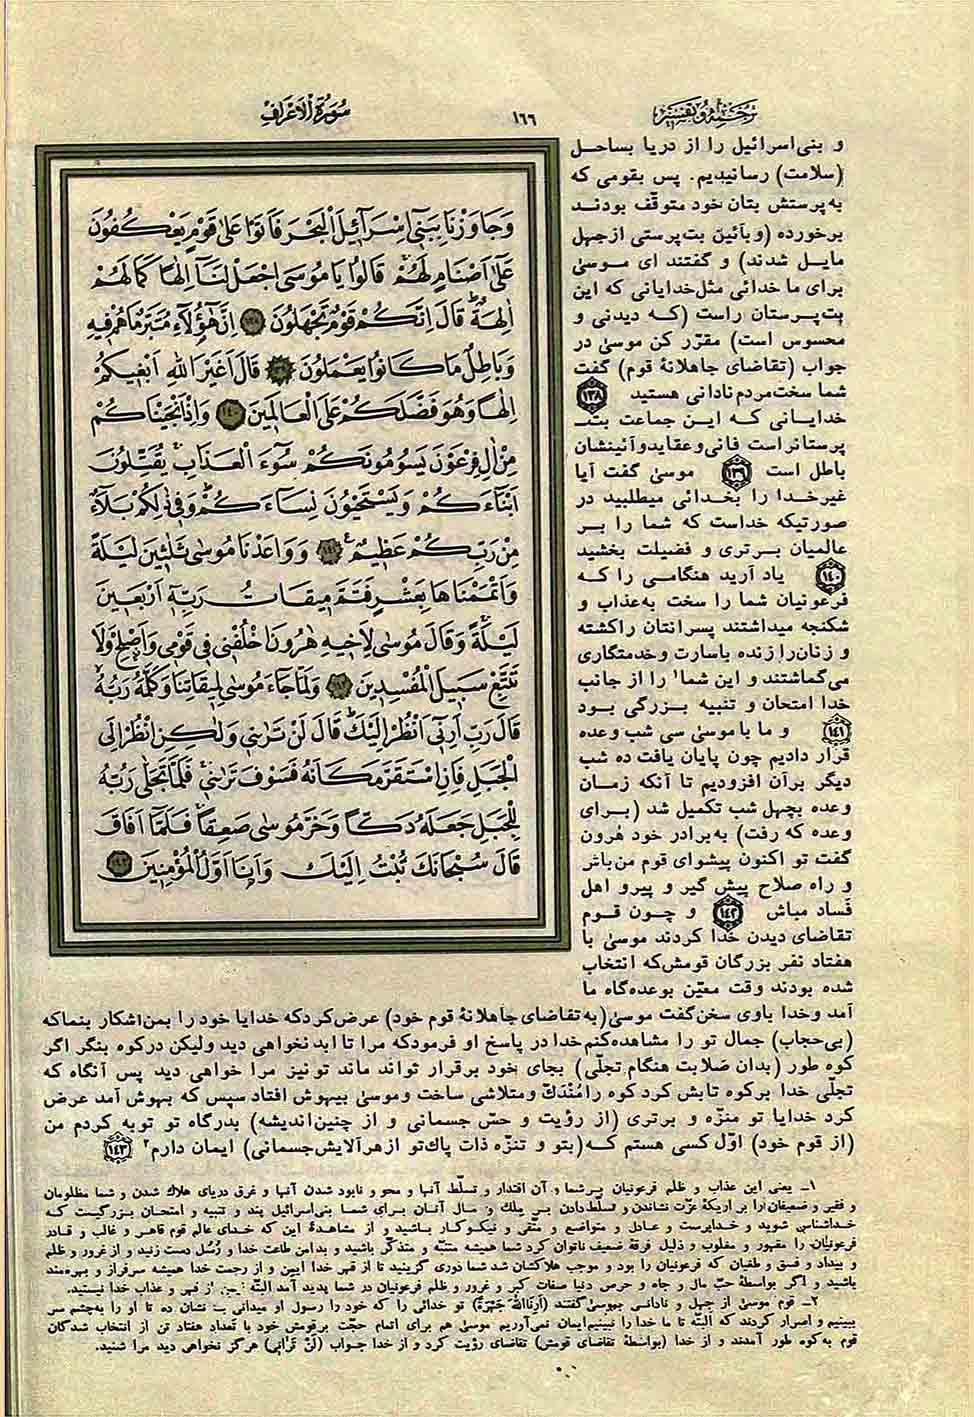 ترجمه و تفسیر
١٦٦
سُورَةُ الْاَعْرَافِ
وَجَاوَزْنَا بِبَنِىٓ اِسْرَآئِيلَ الْبَحْرَ فَاَتَوْا عَلٰى قَوْمٍ يَعْكُفُونَ
عَلٰٓى اَصْنَامٍ لَهُمْ قَالُوا يَا مُوسَى اجْعَلْ لَنَآ اِلٰهًا كَمَا لَهُمْ
اٰلِهَةٌ قَالَ اِنَّكُمْ قَوْمٌ تَجْهَلُونَ ١٣٨ اِنَّ هٰٓؤُلَآءِ مُتَبَّرٌ مَا هُمْ فِيهِ
وَبَاطِلٌ مَا كَانُوا يَعْمَلُونَ ١٣٩ قَالَ اَغَيْرَ اللهِ اَبْغِيكُمْ
اِلٰهًا وَهُوَ فَضَّلَكُمْ عَلَى الْعَالَمِينَ ١٤٠ وَاِذْ اَنْجَيْنَاكُمْ
مِنْ اٰلِ فِرْعَوْنَ يَسُومُونَكُمْ سُوٓءَ الْعَذَابِ يُقَتِّلُونَ
اَبْنَآءَكُمْ وَيَسْتَحْيُونَ نِسَآءَكُمْ وَفِى ذٰلِكُمْ بَلَآءٌ
مِنْ رَبِّكُمْ عَظِيمٌ ١٤١ وَوَاعَدْنَا مُوسٰى ثَلٰثِينَ لَيْلَةً
وَاَتْمَمْنَاهَا بِعَشْرٍ فَتَمَّ مِيقَاتُ رَبِّهِ اَرْبَعِينَ
لَيْلَةً وَقَالَ مُوسٰى لِاَخِيهِ هٰرُونَ اخْلُفْنِى فِى قَوْمِى وَاَصْلِحْ وَلَا
تَتَّبِعْ سَبِيلَ الْمُفْسِدِينَ ١٤٢ وَلَمَّا جَآءَ مُوسٰى لِمِيقَاتِنَا وَكَلَّمَهُ رَبُّهُ
قَالَ رَبِّ اَرِنِىٓ اَنْظُرْ اِلَيْكَ قَالَ لَنْ تَرٰىنِى وَلٰكِنِ انْظُرْ اِلَى
الْجَبَلِ فَاِنِ اسْتَقَرَّ مَكَانَهُ فَسَوْفَ تَرٰىنِى فَلَمَّا تَجَلّٰى رَبُّهُ
لِلْجَبَلِ جَعَلَهُ دَكًّا وَخَرَّ مُوسٰى صَعِقًا فَلَمَّآ اَفَاقَ
قَالَ سُبْحَانَكَ تُبْتُ اِلَيْكَ وَاَنَا اَوَّلُ الْمُؤْمِنِينَ ١٤٣
و بنی‌اسرائیل را از دریا بساحل
(سلامت) رسانیدیم. پس بقومی که
به‌پرستش بتان خود متوقّف بودند
برخورده (و بآئین بت‌پرستی ازجهل
مایل شدند) و گفتند ای موسیٰ
برای ما خدائی مثل‌خدایانی که این
بت‌پرستان راست (که دیدنی و
محسوس است) مقرّر کن موسیٰ در
جواب (تقاضای جاهلانهٔ قوم) گفت
شما سخت‌مردم نادانی هستید ١٣٨
خدایانی که این جماعت بت‌
پرستانراست فانی‌وعقایدوآئینشان
باطل است ١٣٩ موسیٰ گفت آیا
غیرخدا را بخدائی میطلبید در
صورتیکه خداست که شما را بر
عالمیان برتری و فضیلت بخشید
١٤٠ یاد آرید هنگامی را که
فرعونیان شما را سخت به‌عذاب و
شکنجه میداشتند پسرانتان راکشته
و زنان‌را زنده باسارت وخدمتگاری
می‌گماشتند و این شما¹ را از جانب
خدا امتحان و تنبیه بزرگی بود
١٤١ و ما باموسیٰ سی شب وعده
قرار دادیم چون پایان یافت ده شب
دیگر برآن افزودیم تا آنکه زمان
وعده بچهل شب تکمیل شد (برای
وعده که رفت) به‌برادر خود هٰرون
گفت تو اکنون پیشوای قوم من‌باش
و راه صلاح پیش گیر و پیرو اهل
فَساد مباش ١٤٢ و چون قوم
تقاضای دیدن خدا کردند موسیٰ با
هفتاد نفر بزرگان قومش‌که انتخاب
شده بودند وقت معیّن بوعده‌گاه ما
آمد وخدا باوی سخن‌گفت موسیٰ(به‌تقاضای جاهلانهٔ قوم خود) عرض‌کردکه خدایا خود را بمن‌آشکار بنماکه
(بی‌حجاب) جمال تو را مشاهده‌کنم‌خدا در پاسخ او فرمودکه مرا تاابد نخواهی دید ولیکن درکوه بنگر اگر
کوه طور (بدان صَلابت هنگام تجلّی) بجای خود برقرار تواند ماند تونیز مرا خواهی دید پس آنگاه که
تجلّی خدا برکوه تابش کرد کوه را مُنْدَكّ ومتلاشی ساخت وموسیٰ بیهوش افتاد سپس که بهوش آمد عرض
کرد خدایا تو منزّه و برتری (از رؤیت و حسّ جسمانی و از چنین‌اندیشه) بدرگاه تو توبه کردم من
(از قوم خود) اوّل کسی هستم که‌(بتو و تنزّه ذات پاک‌تو ازهرآلایش‌جسمانی) ایمان دارم² ١٤٣
١ـ یعنی این عذاب و ظلم فرعونیان برشما و آن اقتدار و تسلّط آنها و محو و نابود شدن آنها و غرق دریای هلاك شدن و شما مظلومان
و فقیر و ضعیفان‌را بر اریکهٔ عزّت نشاندن و تسلّط‌دادن بر ملك و مال آنان برای شما بنی‌اسرائیل پند و تنبیه و امتحان بزرگیست که
خداشناس شوید و خداپرست و عادل و متواضع و متّقی و نیکوکار باشید و از مشاهدهٔ این که خدای عالم قوم قاهر و غالب و قادر
فرعونیان را مقهور و مغلوب و ذلیل فرقهٔ ضعیف ناتوان کرد شما همیشه متنبّه و متذکّر باشید و بدامن طاعت خدا و رُسُل دست زنید و از غرور و ظلم
و بیداد و فسق و طغیان که فرعونیان را بود و موجب هلاکشان شد شما دوری گزینید تا از قهر خدا ایمن و از رحمت خدا همیشه سرفراز و بهره‌مند
باشید و اگر بواسطهٔ حبّ مال و جاه و حرص دنیا صفات کبر و غرور و ظلم فرعونیان در شما پدید آمد البتّه از قهر و عذاب خدا نیستید.
٢ـ قوم موسیٰ از جهل و نادانی بموسیٰ‌گفتند (اَرِنَااللهَ جَهْرَةً) تو خدائی را که خود را رسول او میدانی ب نشان ده تا او را به‌چشم سر
ببینیم و اصرار کردند که البتّه تا ما خدا را نبینیم‌ایمان نمی‌آوریم موسیٰ هم برای اتمام حجّت برقومش خود با تعداد هفتاد تن از انتخاب شدگان
قوم به‌کوه طور آمدند و از خدا (بواسطهٔ تقاضای قومش) تقاضای رؤیت کرد و از خدا جواب (لَنْ تَرَانِی) هرگز نخواهی دید مرا شنید.